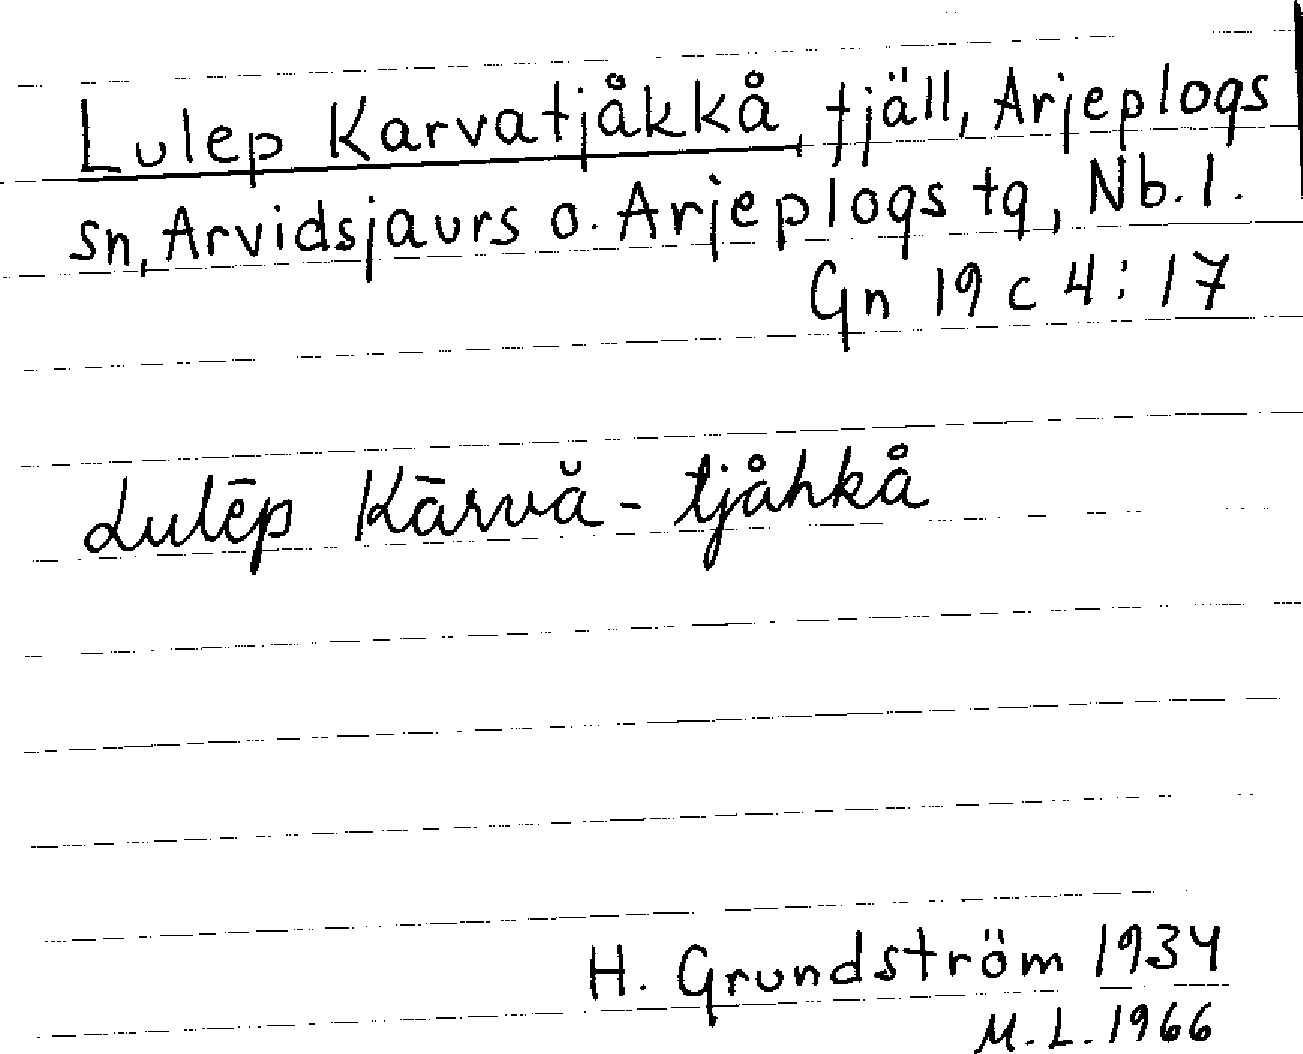 Lulep Karvatjåkkå, fjäll, Arjeplogs
sn, Arvidsjaurs o. Arjeplogs tg, Nb. l.
Gn 19 c 4:17
Lulēp Kārvă-tjåhkå
H. Grundström 1934
M.L. 1966